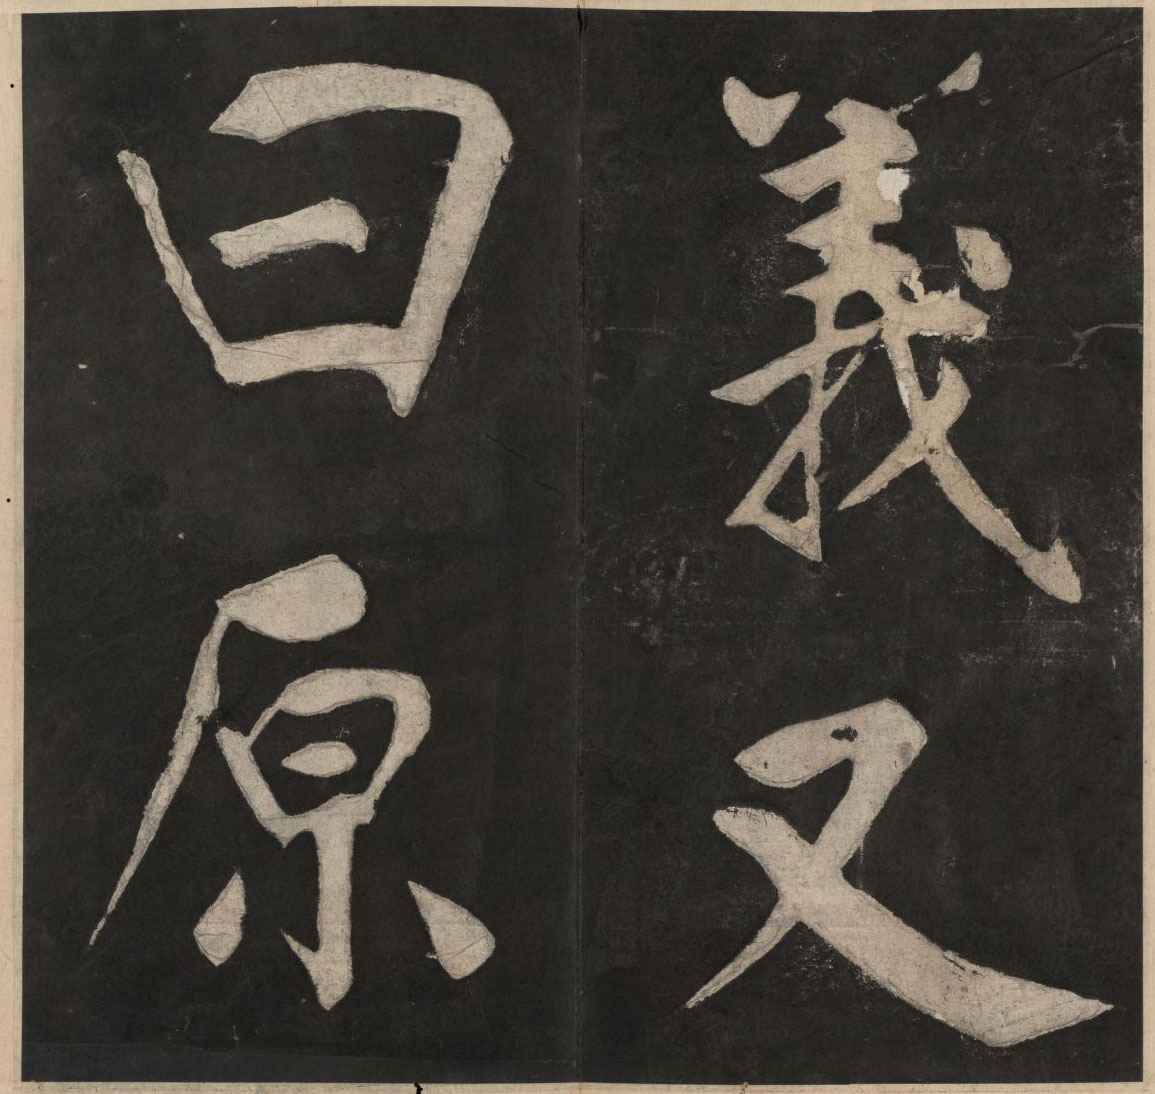 義又
曰原